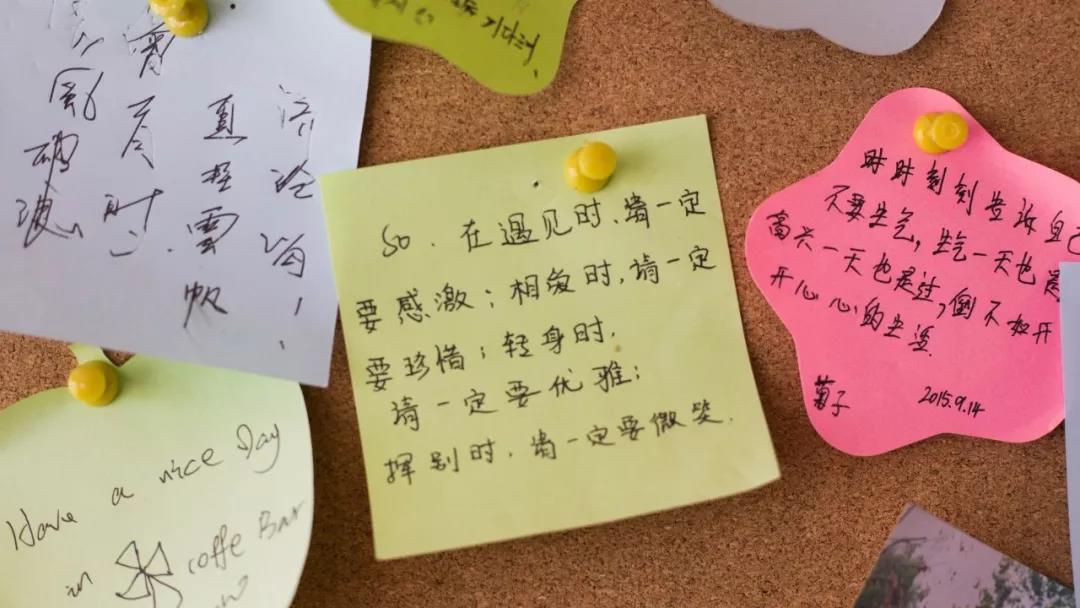 风破浪
有时、
直挂雲帆
济沧海!
So. 在遇见时.请一定
要感激;相爱时,请一定
要珍惜;转身时.
请一定要优雅;
挥别时.请一定要微笑.
时时刻刻告诉自己
不要生气,生气一天也是
高兴一天也是过,倒不如开
开心心的生活.
菊子 2015.9.14
Have a nice Day
in coffe Bar